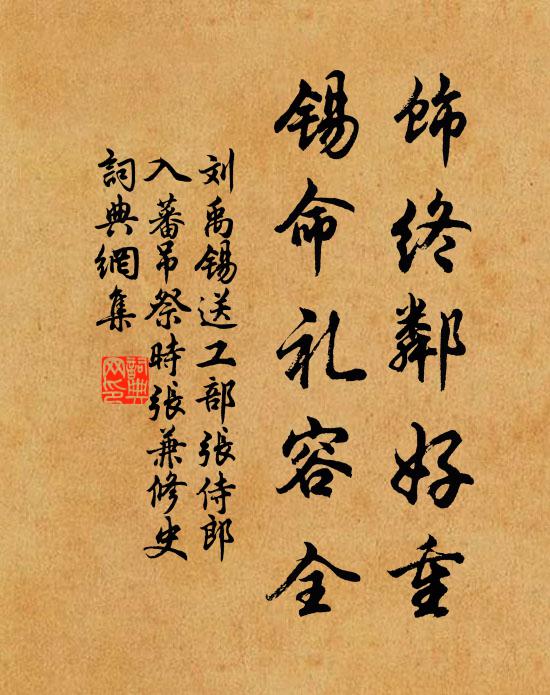 飾终鄰好重
锡命礼容全
刘禹锡送工部張侍郎
入蕃吊祭時張兼修史
詞典網集
詞典网印